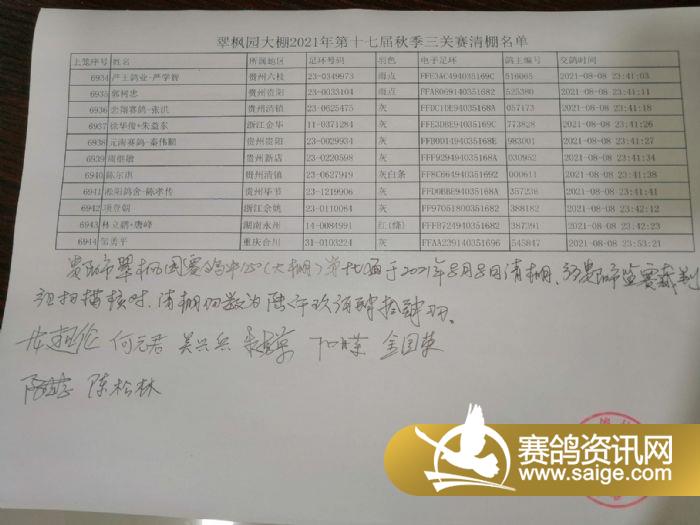 翠枫园大棚2021年第十七届秋季三关赛清棚名单
上笼序号 姓名 所属地区 足环号码 羽色 电子足环 鸽主编号 交鸽时间
6934 严王鸽业-严学智 贵州六枝 23-0349973 雨点 FFE3AC494035169C 516065 2021-08-08 23:41:03
6935 郭柯忠 贵州贵阳 23-0033104 雨点 2021-08-08 23:41:11
6936 宏翔赛鸽-张洪 贵州清镇 23-0625475 灰 057173 2021-08-08 23:41:18
6937 徐华俊+朱益东 浙江金华 11-0371284 灰 773828 2021-08-08 23:41:26
6938 元南赛鸽-秦伟顺 贵州贵阳 23-0029934 灰 983001 2021-08-08 23:41:27
6939 周继敏 贵州新店 23-0220598 灰 030952 2021-08-08 23:41:34
6940 陈尔琪 贵州清镇 23-0627949 灰白条 000611 2021-08-08 23:41:38
6941 凇阳鸽舍-陈孝传 贵州毕节 23-1219906 灰 357236 2021-08-08 23:41:41
6942 项登朝 浙江余姚 23-0110084 灰 FF97051800035168 388182 2021-08-08 23:42:12
6943 林立鹏+唐峰 湖南永州 14-0084991 红(绛) 387391 2021-08-08 23:42:23
6944 邹勇平 重庆合川 31-0103224 灰 FFAA239140351696 545847 2021-08-08 23:53:21
贵阳市翠枫园赛鸽中心(大棚)第十七届于2021年8月8日清棚,经贵阳市监赛裁判
组扫描核对,清棚羽数为陆仟玖佰肆拾肆羽。
何元君 吴兴兵 金国荣
陈松林
赛鸽资讯网
www.saige.com